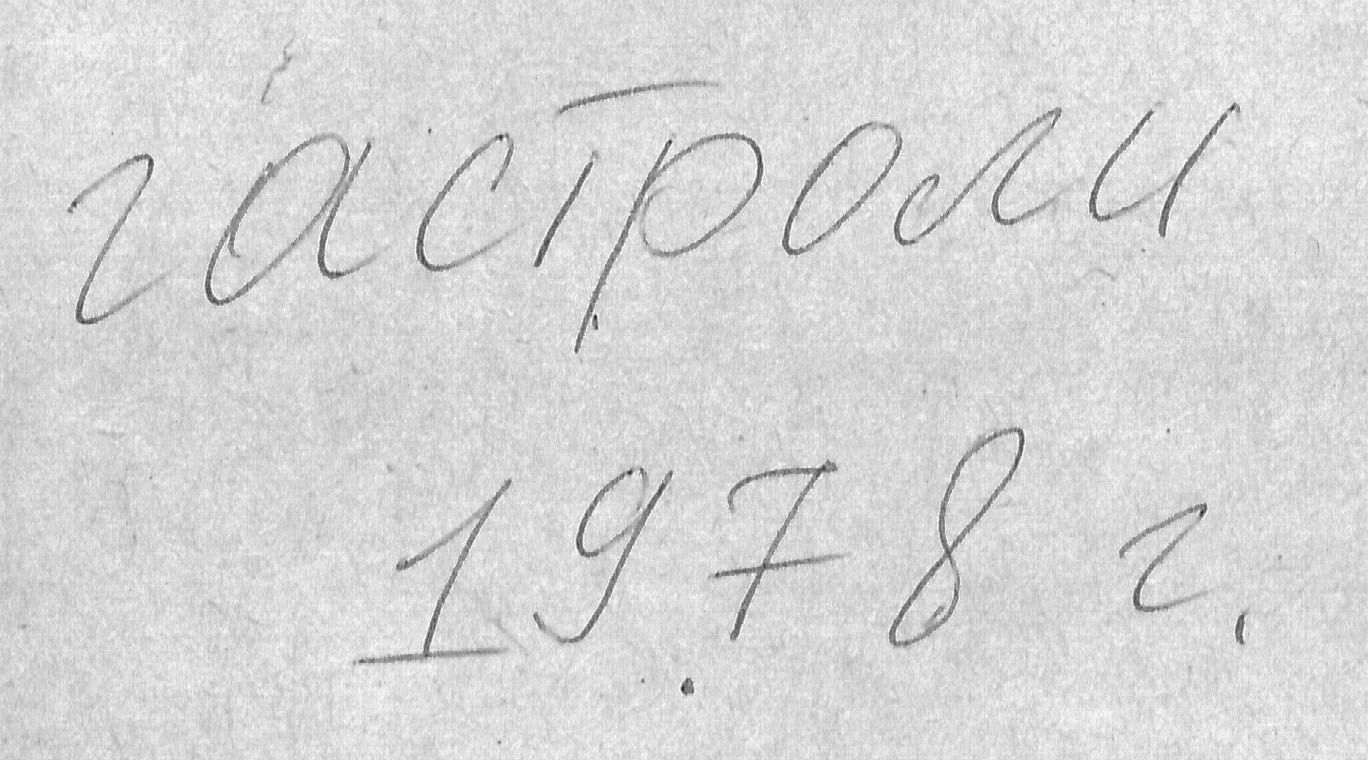 гастроли
1978 г.